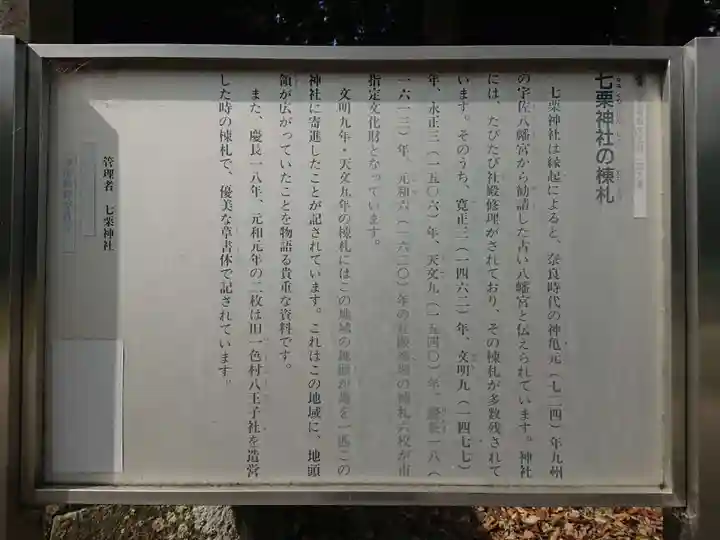 七栗神社の棟札
七栗神社は縁起によると、奈良時代の神亀元(七二四)年九州
の宇佐八幡宮から勧請した古い八幡宮と伝えられています。神社
には、たびたび社殿修理がされており、その棟札が多数残されて
います。そのうち、寛正三(一四六二)年、文明九(一四七七)
年、永正三(一五〇六)年、天文九(一五四〇)年、慶長一八(
一六一三)年、元和六(一六二〇)年の 棟札六枚が市
指定文化財となっています。
文明九年・天文九年の棟札にはこの地域の地頭が馬を一匹この
神社に寄進したことが記されています。これはこの地域に、地頭
領が広がっていたことを物語る貴重な資料です。
また、慶長一八年、元和元年の二枚は旧一色村八王子社を造営
した時の棟札で、優美な草書体で記されています。
管理者 七栗神社